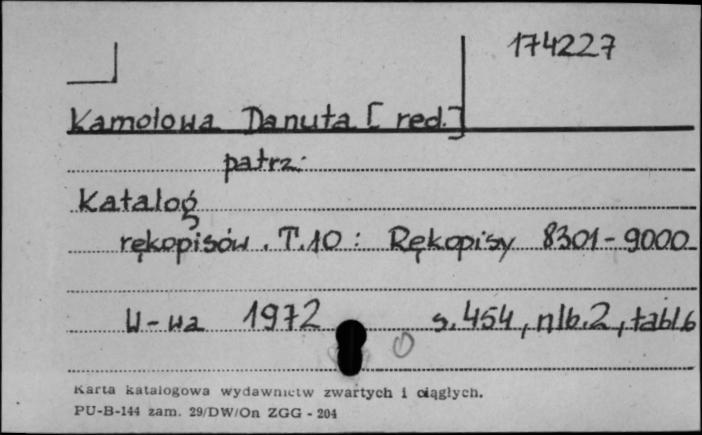 174227
Kamolowa Danuta [red.]
patrz:
Katalog
rękopisów. T.10: Rękopisy 8301-9000
W-wa 1972 s. 454, nlb. 2, tabl. 6
Karta katalogowa wydawnictw zwartych i ciągłych.
PU-B-144 zam. 29/DW/On ZGG - 204